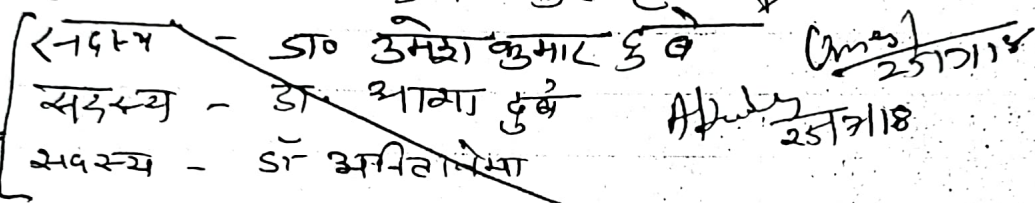 सदस्य - डा० उमेश कुमार दुबे 25/7/18
सदस्य - डॉ. आभा दुबे 25/7/18
सदस्य - डॉ अनिता नेमा